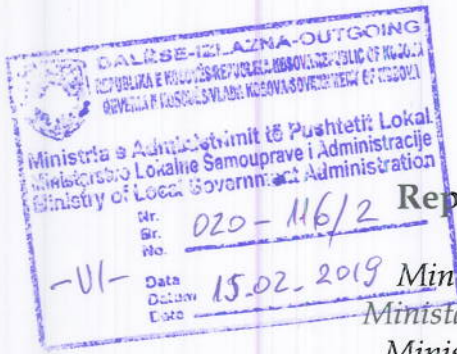 DALËSE-IZLAZNA-OUTGOING
REPUBLIKA E KOSOVËS-REPUBLIKA KOSOVA-REPUBLIC OF KOSOVA
QEVERIA E KOSOVËS-VLADA KOSOVA-GOVERNMENT OF KOSOVA
Ministria e Administrimit të Pushtetit Lokal
Ministarstvo Lokalne Samouprave i Administracije
Ministry of Local Government Administration
Nr.
Br.
No.
020-116/2
Rep
-VI-
Data
Datum
Date
15.02.2019
Min
Minista
Minis